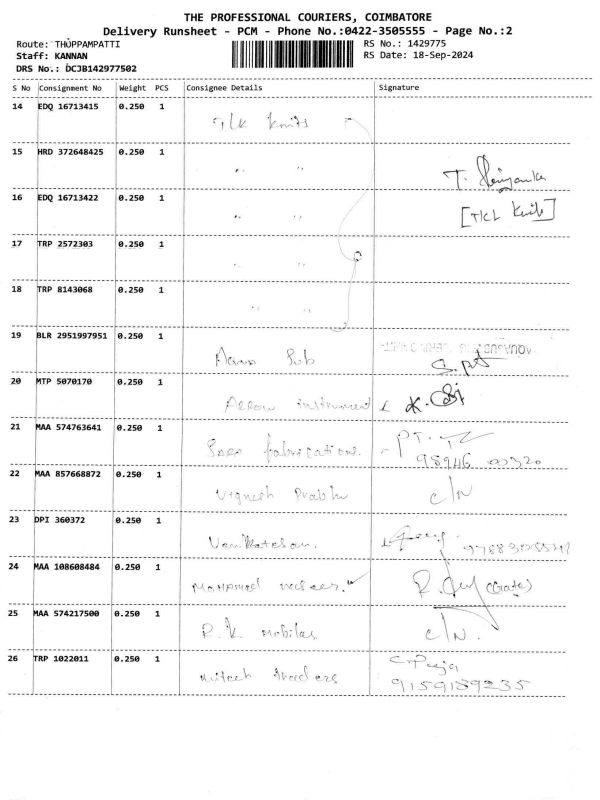 THE PROFESSIONAL COURIERS, COIMBATORE
Delivery Runsheet - PCM - Phone No.:0422-3505555 - Page No.:2
Route: THOPPAMPATTI RS No.: 1429775
Staff: KANNAN RS Date: 18-Sep-2024
DRS No.: DCJB142977502
S No Consignment No Weight PCS Consignee Details Signature
14 EDQ 16713415 0.250 1 Tlk knits
15 HRD 372648425 0.250 1 " " T.
16 EDQ 16713422 0.250 1 " " [TKL Knits]
17 TRP 2572303 0.250 1 " "
18 TRP 8143068 0.250 1 " "
19 BLR 2951997951 0.250 1
20 MTP 5070170 0.250 1 Arrow instrument K.
21 MAA 574763641 0.250 1 fabrications. 98946 00320
22 MAA 857668872 0.250 1 Vignesh Prabhu C/N
23 DPI 360372 0.250 1 Venkatesan.
24 MAA 108608484 0.250 1 Mohamed R. (Gate)
25 MAA 574217500 0.250 1 P.K. mobiles C/N.
26 TRP 1022011 0.250 1 traders C. Puja
9159189235